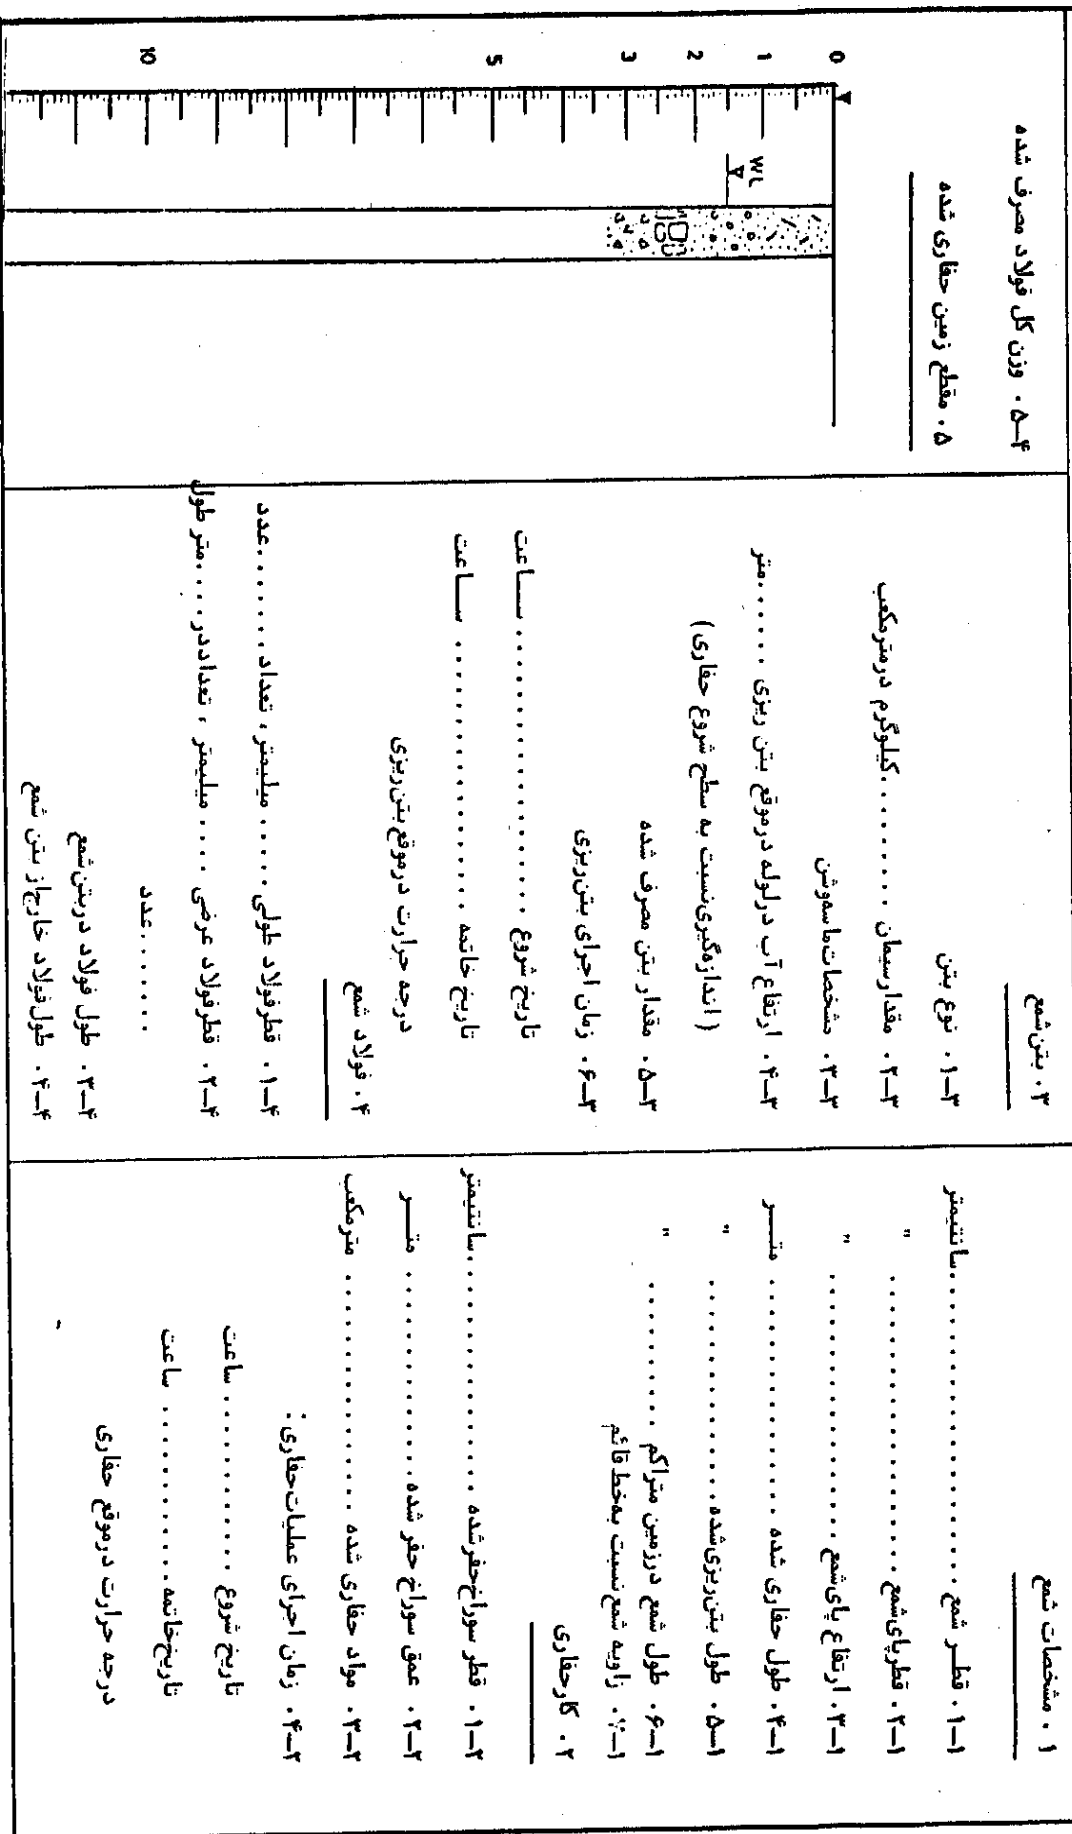 ۱. مشخصات شمع
۱-۱. قطر شمع ..................... سانتیمتر
۲-۱. قطرپای شمع ..................... "
۳-۱. ارتفاع پای شمع ..................... "
۴-۱. طول حفاری شده ..................... متر
۵-۱. طول بتن‌ریزی شده ..................... "
۶-۱. طول شمع درزمین متراکم .......... "
۷-۱. زاویه شمع نسبت به خط قائم
۲. کارحفاری
۱-۲. قطر سوراخ حفرشده ..................... سانتیمتر
۲-۲. عمق سوراخ حفر شده ..................... متر
۳-۲. مواد حفاری شده ..................... مترمکعب
۴-۲. زمان اجرای عملیات حفاری :
تاریخ شروع .............. ساعت
تاریخ خاتمه .............. ساعت
درجه حرارت درموقع حفاری
۳. بتن شمع
۱-۳. نوع بتن
۲-۳. مقدارسیمان ........... کیلوگرم درمترمکعب
۳-۳. مشخصات ماسه‌وشن
۴-۳. ارتفاع آب درلوله درموقع بتن ریزی ...... متر
(اندازه‌گیری نسبت به سطح شروع حفاری)
۵-۳. مقدار بتن مصرف شده
۶-۳. زمان اجرای بتن‌ریزی
تاریخ شروع .................. ساعت
تاریخ خاتمه .................. ساعت
درجه حرارت درموقع بتن‌ریزی
۴. فولاد شمع
۱-۴. قطرفولاد طولی ..... میلیمتر، تعداد ........ عدد
۲-۴. قطرفولاد عرضی ..... میلیمتر، تعداددر ..... متر طول
....... عدد
۳-۴. طول فولاد دربتن شمع
۴-۴. طول فولاد خارج از بتن شمع
۵-۴. وزن کل فولاد مصرف شده
۵. مقطع زمین حفاری شده
0 1 2 3 5 10
WL